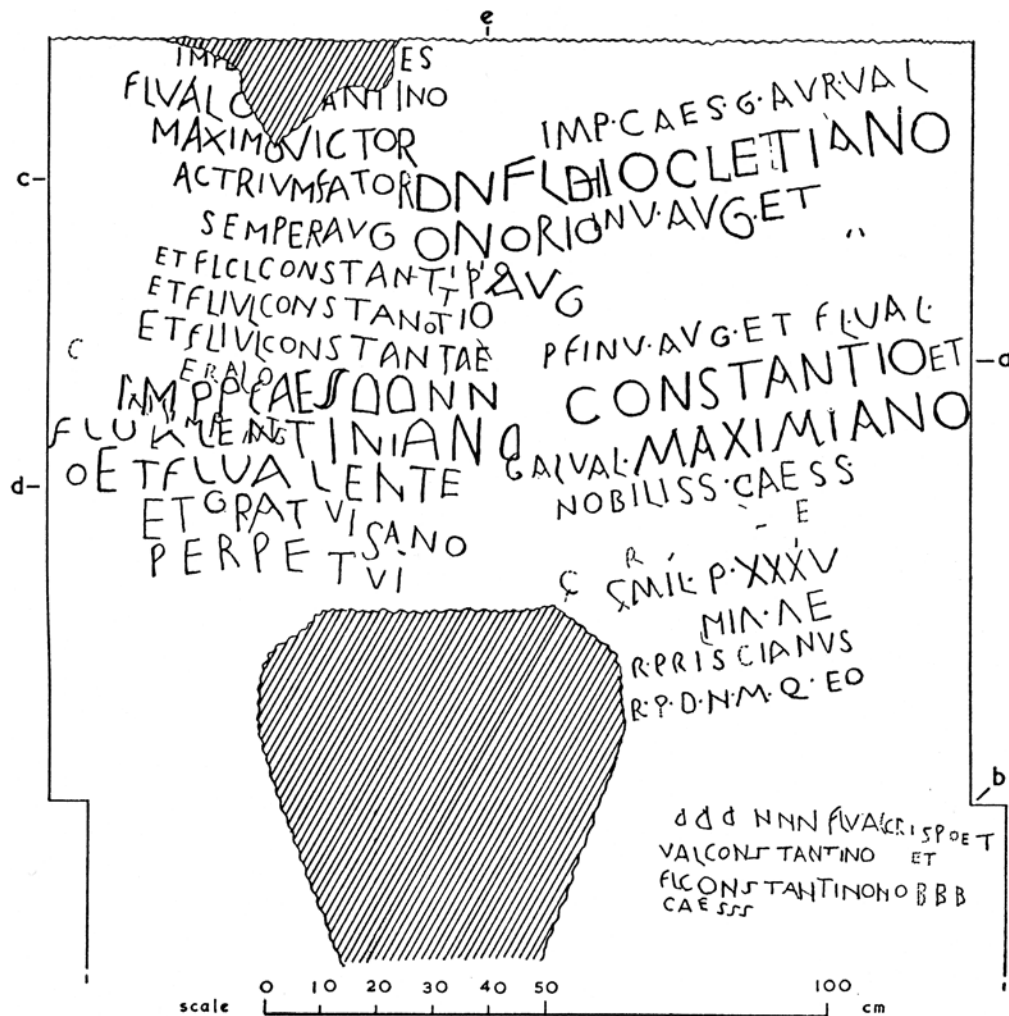 e
ES
FLVALC ANTINO
MAXIMOVICTOR
ACTRIVMFATOR
SEMPERAVG
ETFLCLCONSTANTI
ETFLIVLCONSTANTIO
ETFLIVLCONSTANTAE
C
ERALO
IMPPCAESDDNN
FLUALENTINIANO
OETFLUALENTE
ETGRAT
VI
SANO
PERPETVI
DNFL
ONORIO
P
AVG
IMP·CAES·G·AVR·VAL
DIOCLETIANO
INV·AVG·ET
PFINV·AVG·ET FL·VAL·
CONSTANTIOET
GALVAL·MAXIMIANO
NOBILISS·CAESS·
E
R
C
ÇMIL·P·XXXV
MIΛ·ΛE
R·PRISCIANVS
R·P·D·N·M·Q·EO
c
d
a
b
d d d NNN FLVALCRISPOET
VALCONSTANTINO ET
FLCONSTANTINONOBBB
CAESSS
0 10 20 30 40 50 100
scale cm